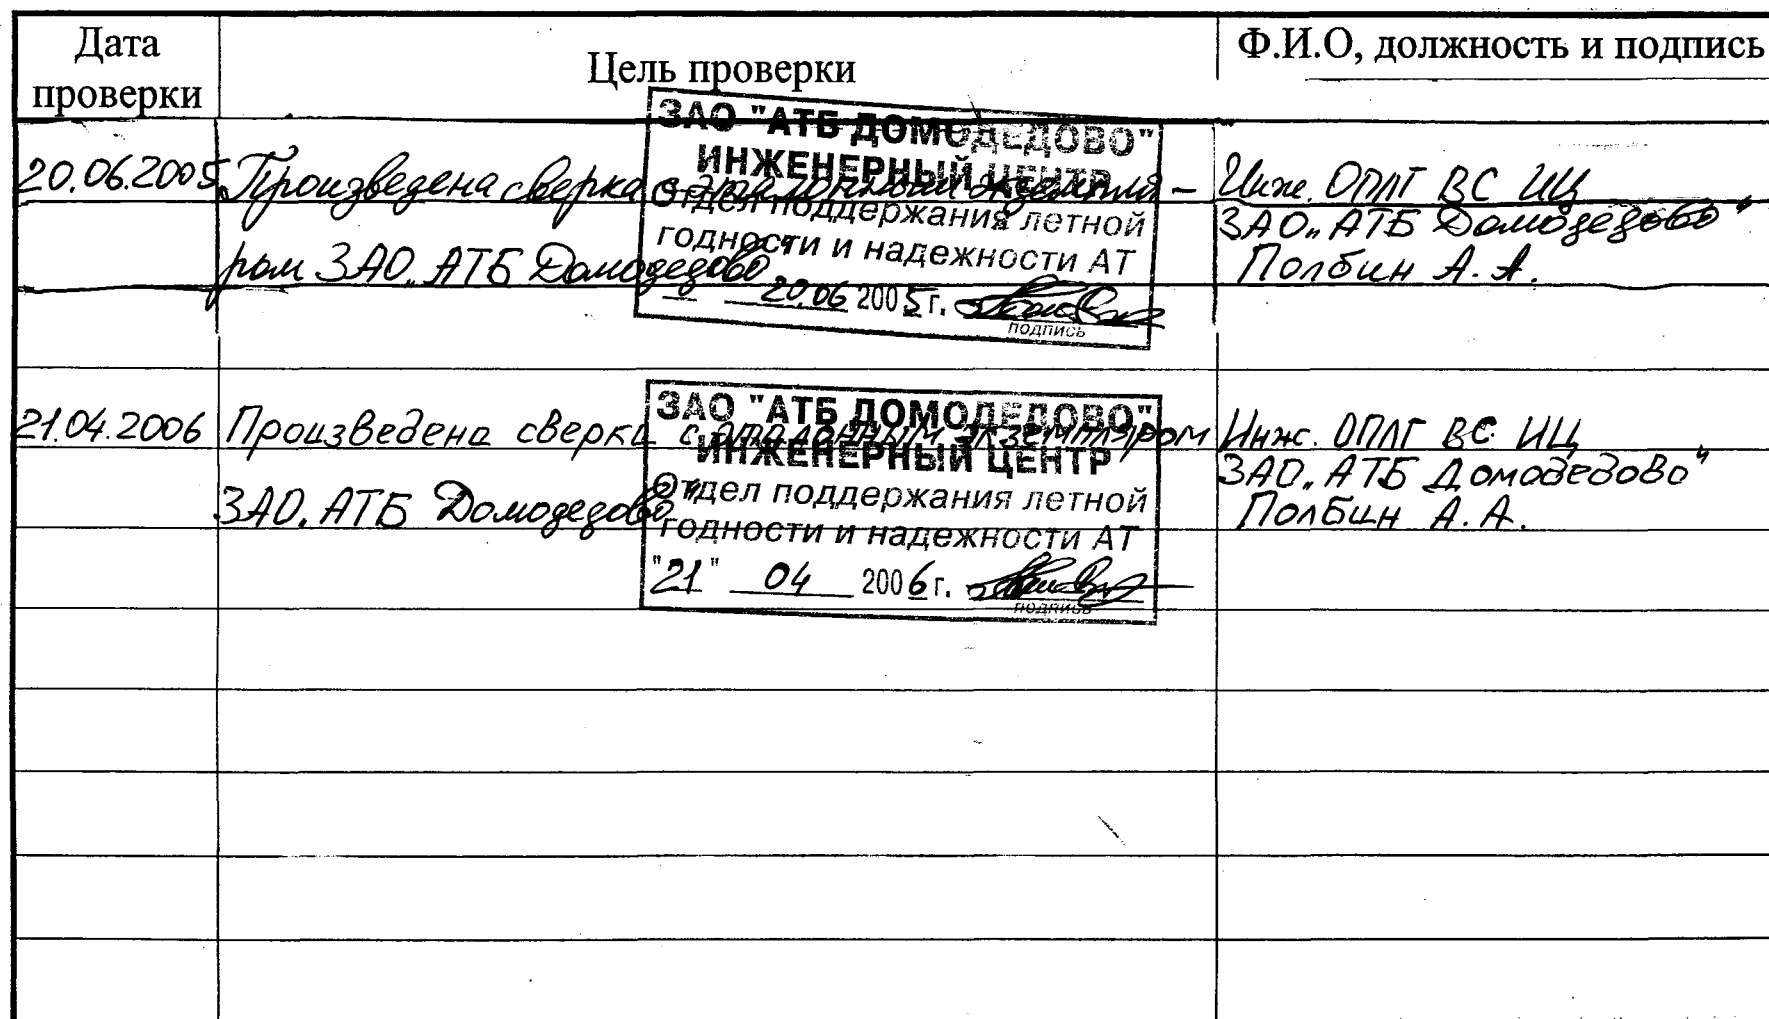 Дата проверки
Цель проверки
Ф.И.О, должность и подпись
20.06.2005
Произведена сверка с эталонным экземпля-
ром ЗАО „АТБ Домодедово"
ЗАО "АТБ ДОМОДЕДОВО"
ИНЖЕНЕРНЫЙ ЦЕНТР
Отдел поддержания летной
годности и надежности АТ
20.06 2005 г.
подпись
Инж. ОПЛГ ВС ИЦ
ЗАО „АТБ Домодедово"
Полбин А.А.
21.04.2006
Произведена сверка с эталонным экземпляром
ЗАО „АТБ Домодедово"
ЗАО "АТБ ДОМОДЕДОВО"
ИНЖЕНЕРНЫЙ ЦЕНТР
Отдел поддержания летной
годности и надежности АТ
"21" 04 2006 г.
подпись
Инж. ОПЛГ ВС ИЦ
ЗАО „АТБ Домодедово"
Полбин А.А.